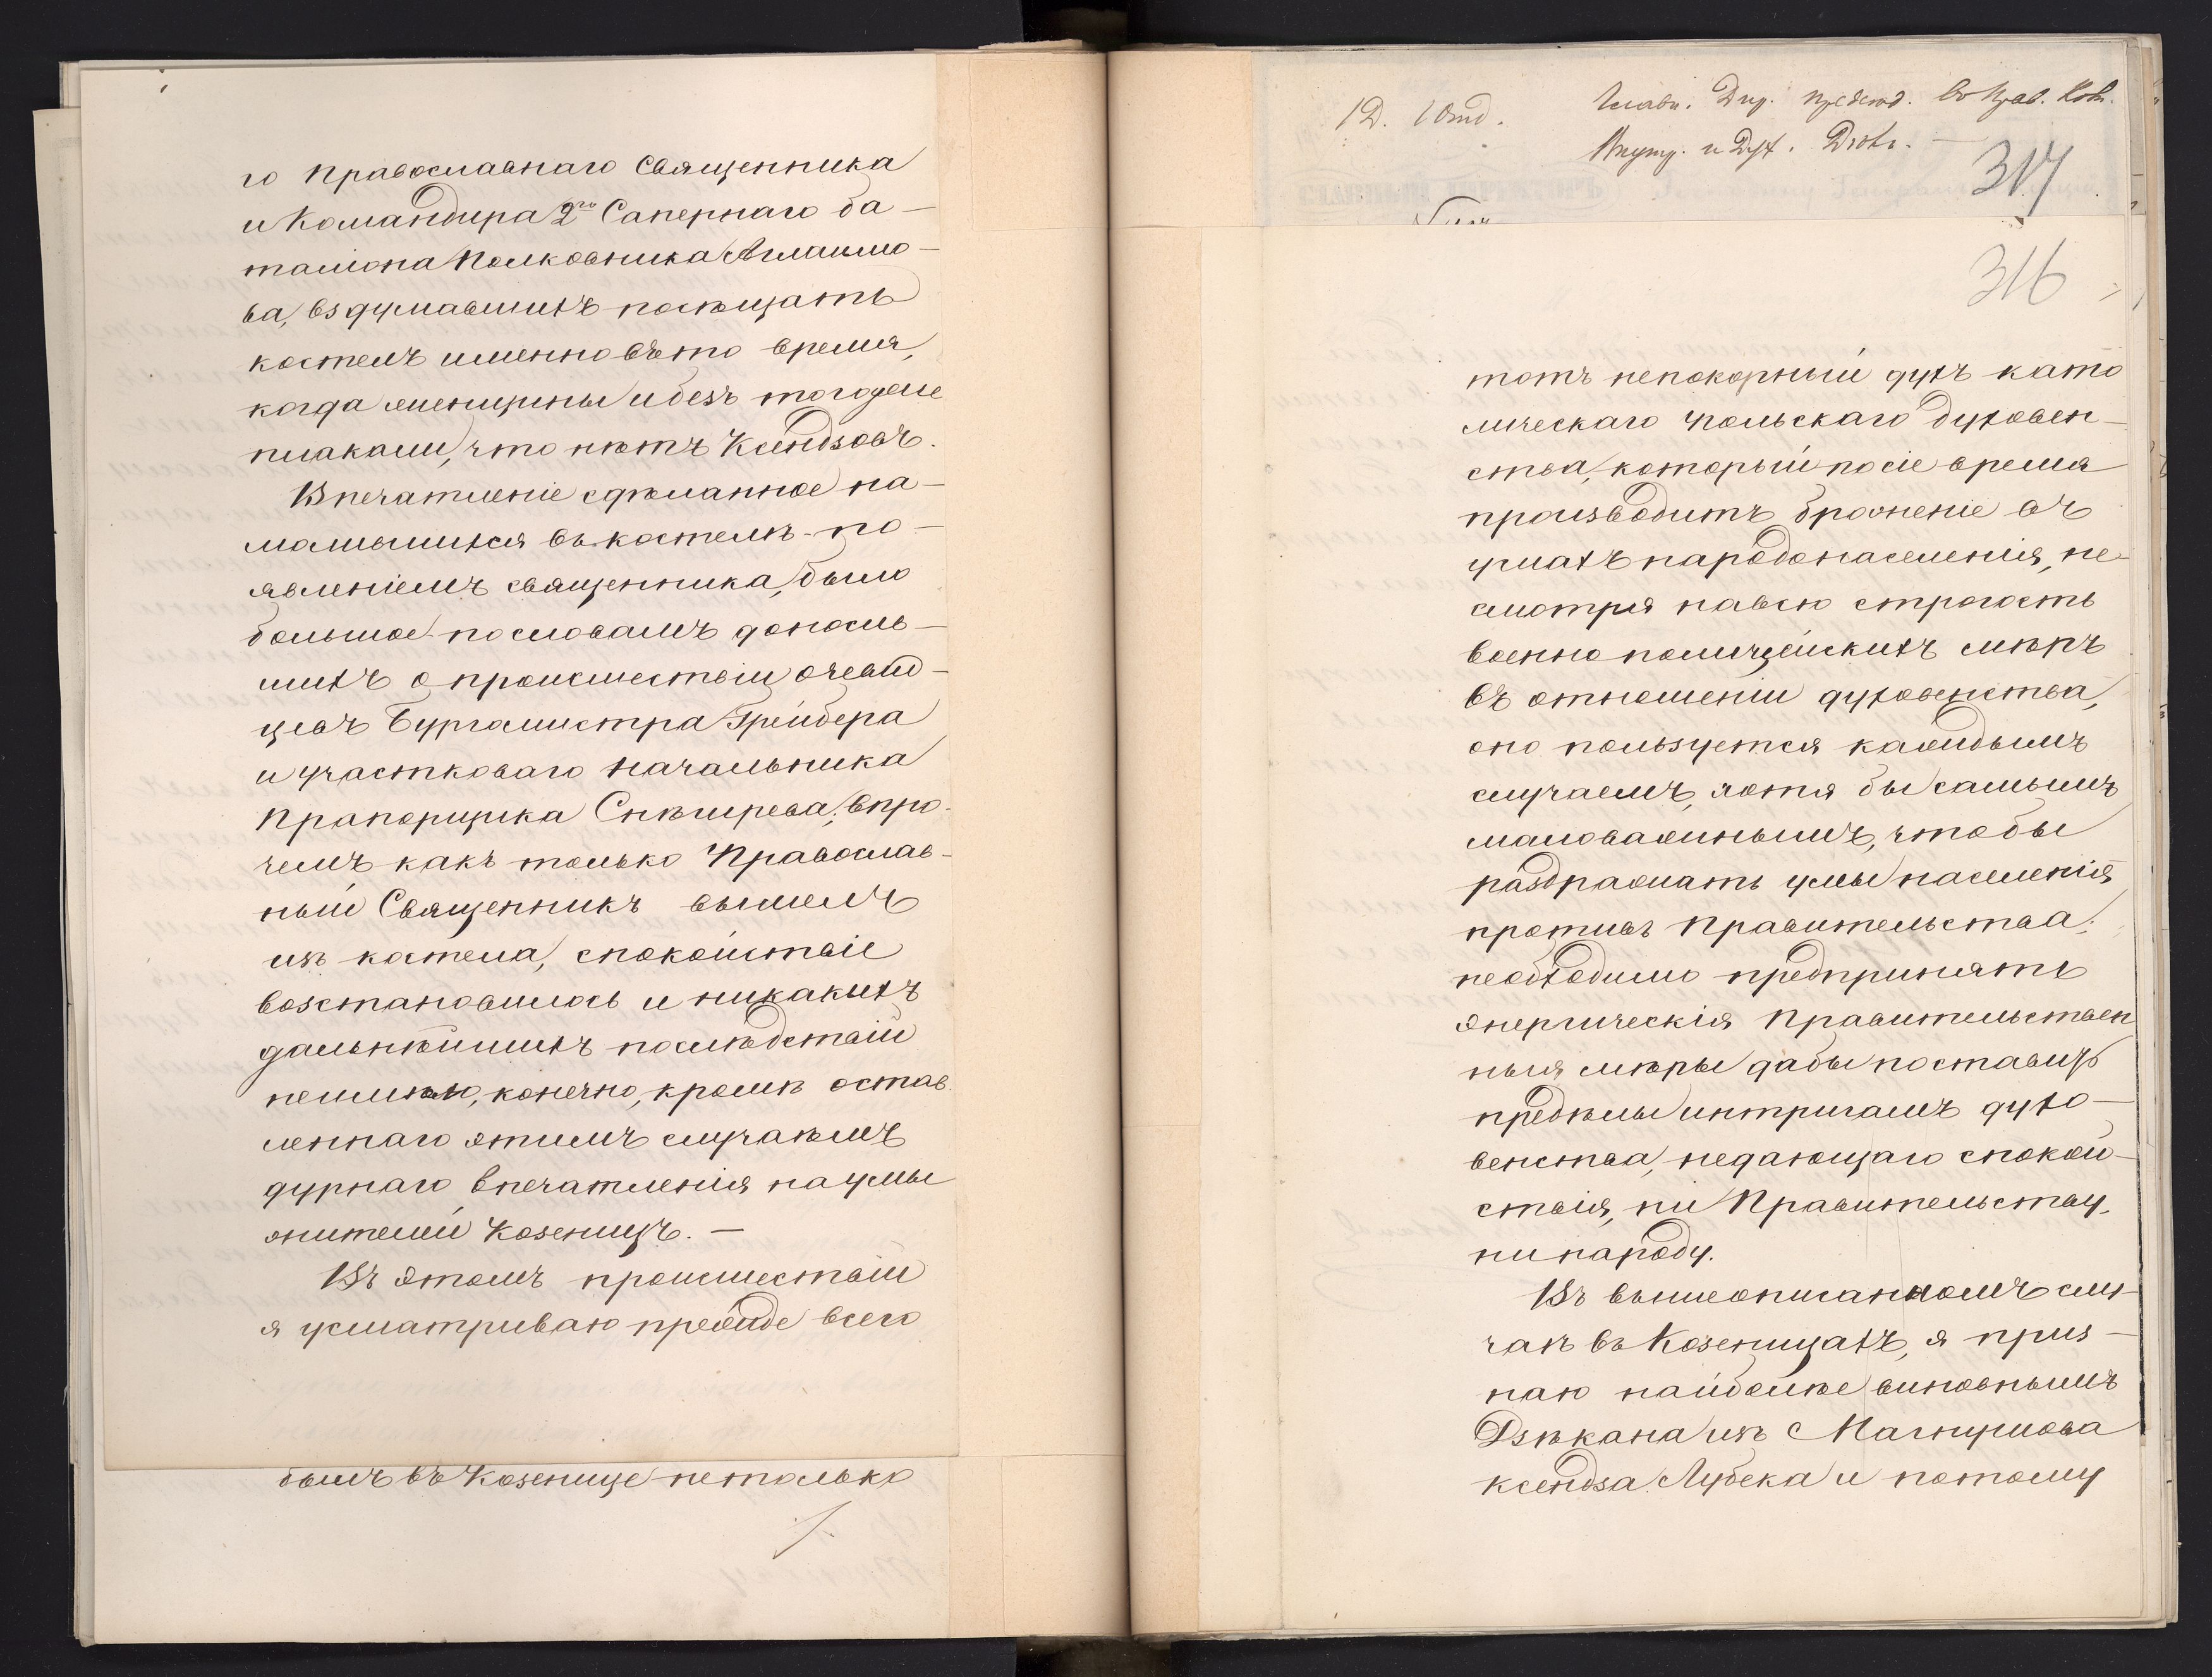 го Православнаго Священника
и Командира 2го Сапернаго ба-
таліона Полковника Аглаимо-
ва, вздумавшихъ посѣщать
костелъ именно въ то время,
когда женщины и безъ тогоже
плакали, что нѣтъ Ксендзовъ.
Впечатленіе сдѣланное на-
молившихся въ костелѣ по-
явленіемъ священника, было
большое по словамъ доносив-
шихъ о происшествіи очевид-
цевъ Бургомистра Грейбера
и участковаго Начальника
Прапорщика Снѣгирева; впро-
чемъ какъ только Православ-
ный Священникъ вышелъ
изъ костела, спокойствіе
возстановилось и никакихъ
дальнѣйшихъ послѣдствій
неимѣло, конечно, кромѣ остав-
леннаго этимъ случаѣмъ
дурнаго впечатленія на умы
жителей Козеницъ. —
Въ этомъ происшествіи
я усматриваю прежде всего
былъ въ Козенице не только
1Д. 1 Отд.
Главн. Дир. предсѣд. въ Прав. Ком.
Внутр. и Дух. Дѣлъ. —
317
316
тотъ непокорный духъ като
лическаго польскаго духовен-
ства, который по сіе время
производитъ броженіе въ
умахъ народонаселенія, не-
смотря на всю строгость
военно полицейскихъ мѣръ
въ отношеніи духовенства,
оно пользуется каждымъ
случаемъ, хотя бы самымъ
маловажнымъ, чтобы
раздражать умы населенія
противъ Правительства;
необходимо предпринять
энергическія Правительствен
ныя мѣры дабы поставить
предѣлы интригамъ духо-
венства, недающаго спокой-
ствія, ни Правительству,
ни народу.
Въ вышеописанномъ слу-
чаѣ въ Козеницахъ, я приз-
наю наиболѣе виновнымъ
Дзѣкана изъ Магнушова
ксендза Лубека и потому